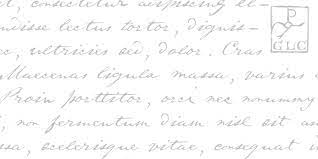 , consectetur adipiscing el-
ndisse lectus tortor, dignis-
ec, ultricies sed, dolor. Cras
Maecenas ligula massa, varius
Proin porttitor, orci nec nonummy
, non fermentum diam nisl sit am
ssa, scelerisque vitae, consequat i
P
GLC